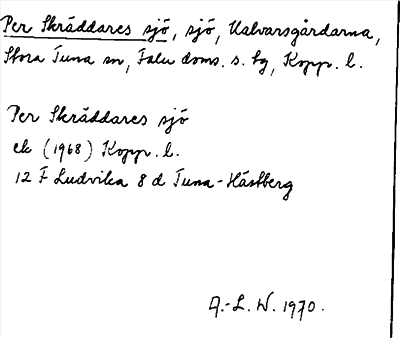 Per Skräddares sjö, sjö, Kalvarsgårdarna,
Stora Tuna sn, Falu doms. s. tg, Kopp. l.
Per Skräddares sjö
ek (1968) Kopp. l.
12 F Ludvika 8 d Tuna-Hästberg
A.-L. W. 1970.